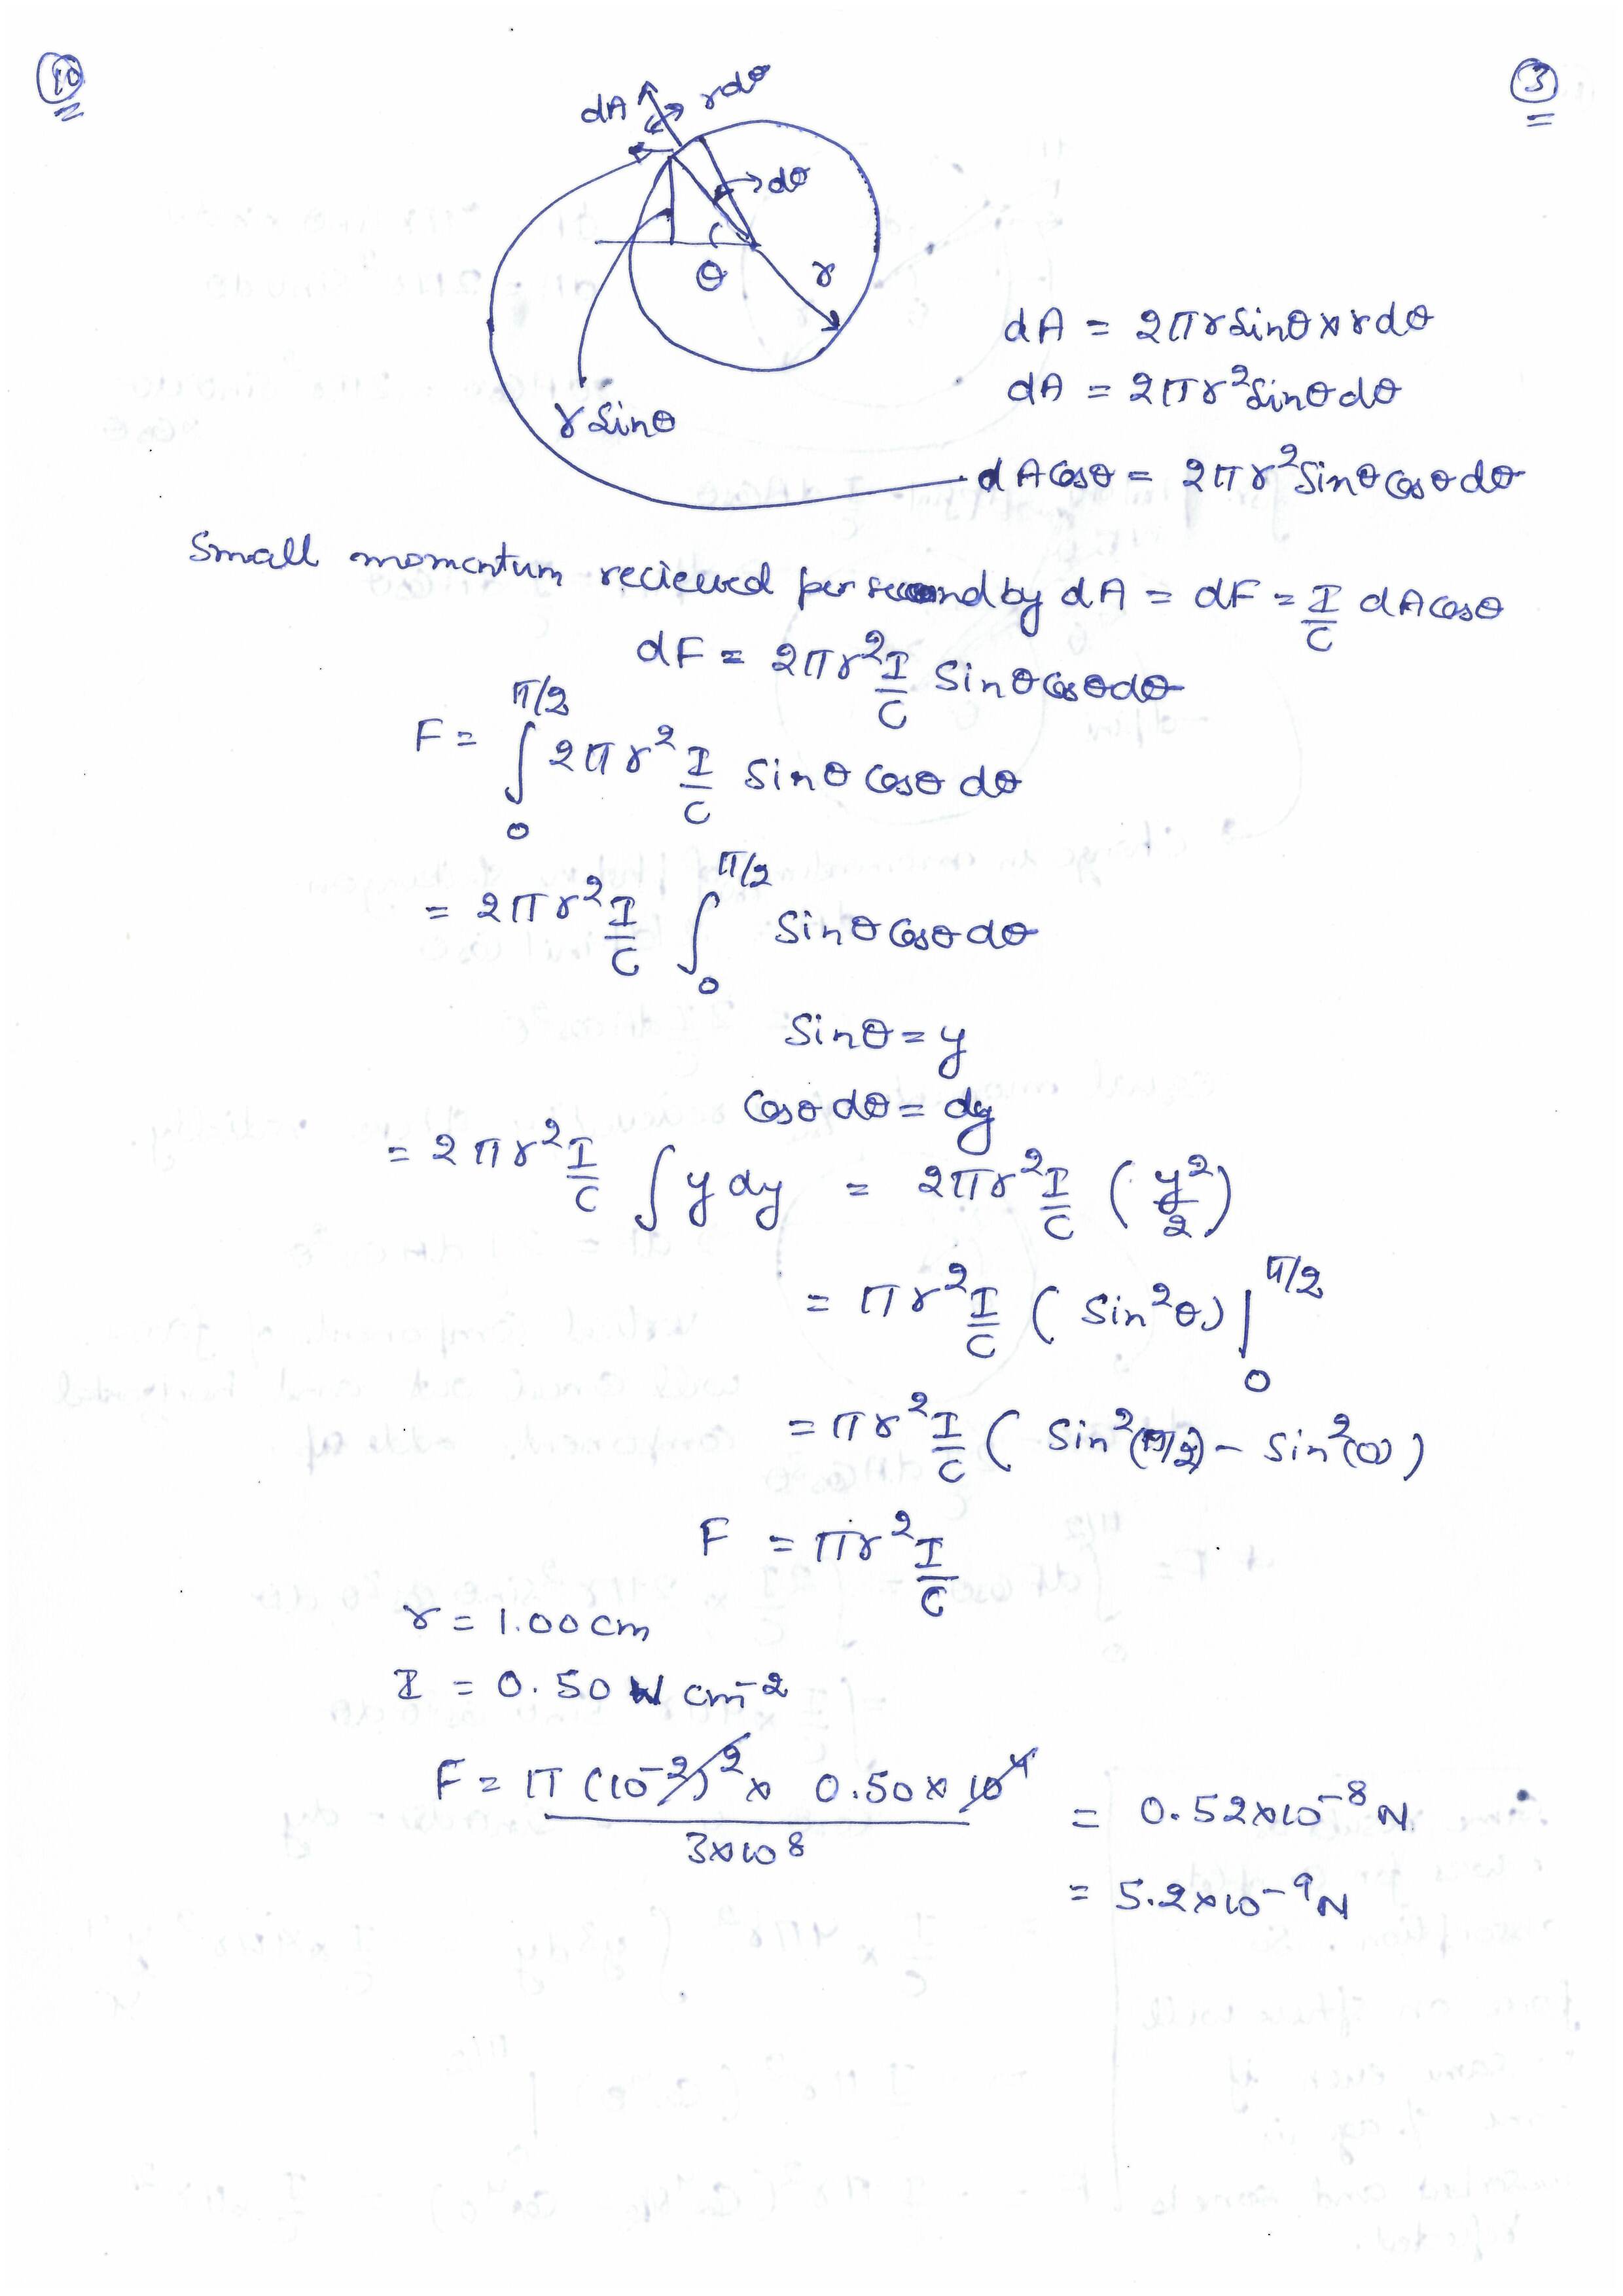 10
3
dA rdθ
dθ
θ r
r Sinθ
dA = 2πr Sinθ × r dθ
dA = 2πr² Sinθ dθ
dA Cosθ = 2πr² Sinθ Cosθ dθ
Small momentum recieved per second by dA = dF = I/C dA Cosθ
dF = 2πr² I/C Sinθ Cosθ dθ
F = ∫₀^{π/2} 2πr² I/C Sinθ Cosθ dθ
= 2πr² I/C ∫₀^{π/2} Sinθ Cosθ dθ
Sinθ = y
Cosθ dθ = dy
= 2πr² I/C ∫ y dy = 2πr² I/C (y²/2)
= πr² I/C (Sin²θ) |₀^{π/2}
= πr² I/C (Sin²(π/2) - Sin²(0))
F = πr² I/C
r = 1.00 cm
I = 0.50 W cm⁻²
F = π (10⁻²)² × 0.50 × 10⁴ / 3×10⁸ = 0.52×10⁻⁸ N
= 5.2×10⁻⁹ N